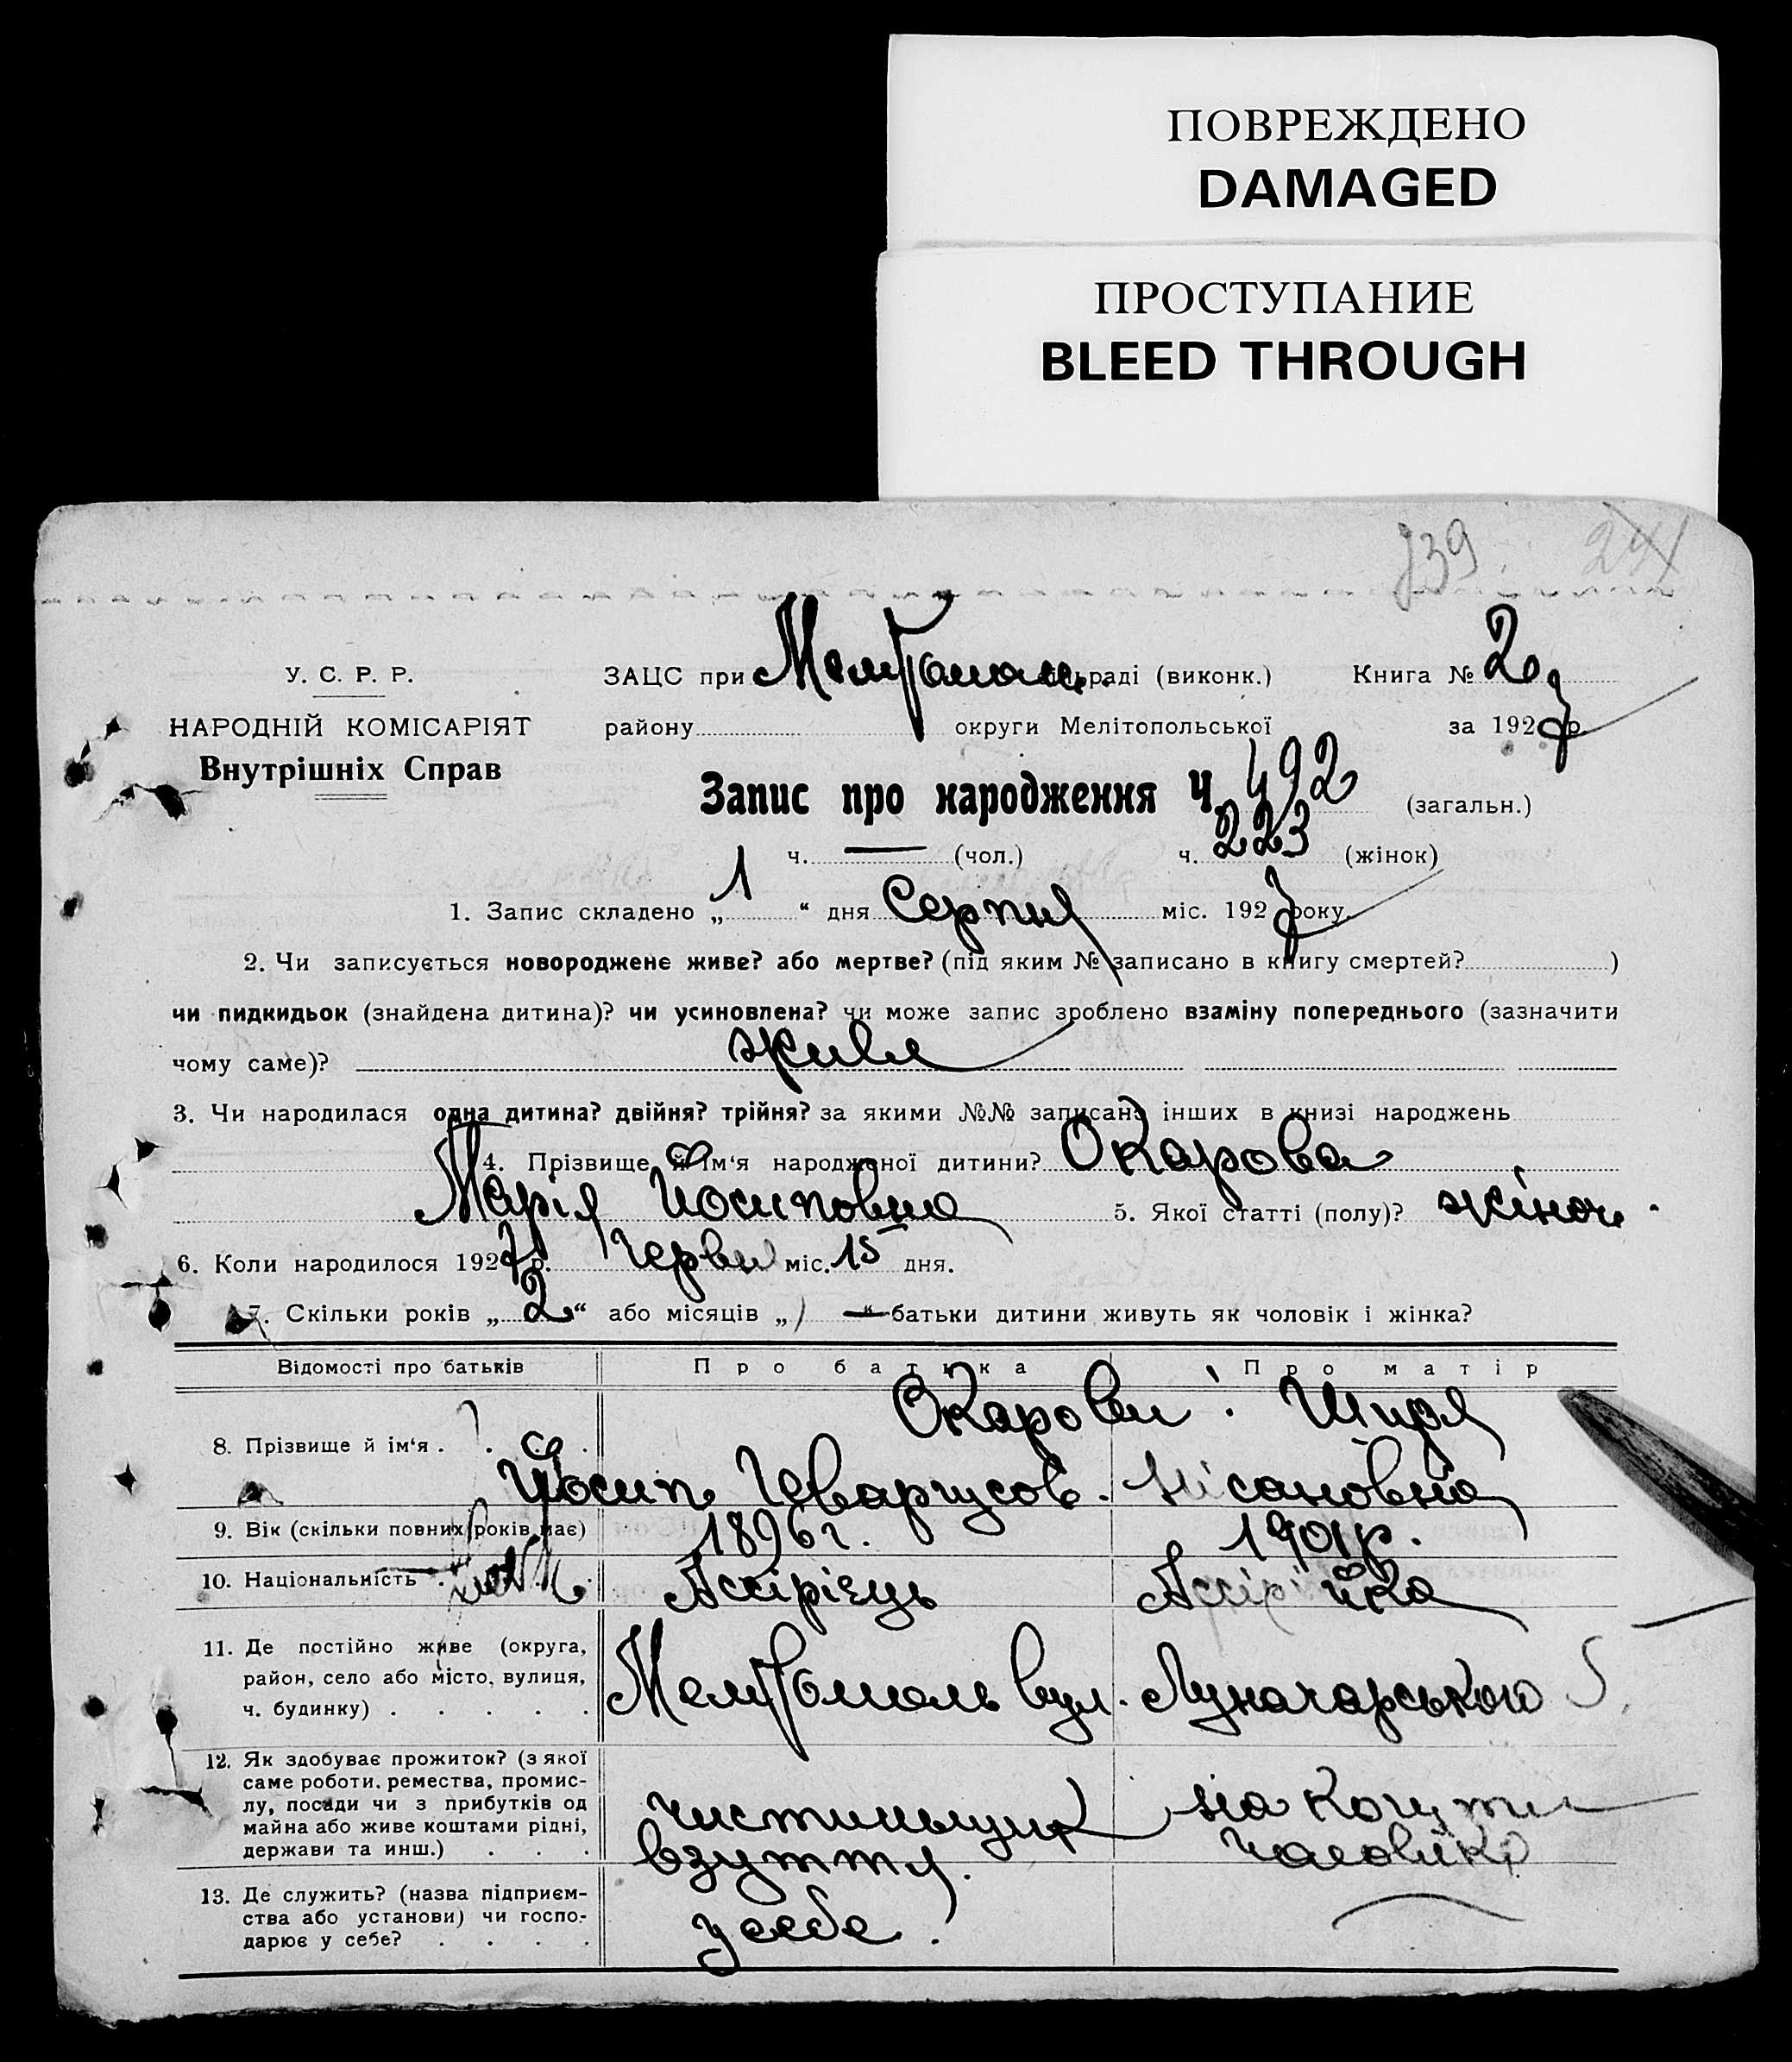 ПОВРЕЖДЕНО
DAMAGED
ПРОСТУПАНИЕ
BLEED THROUGH
739. 241
У. С. Р. Р. ЗАЦС при Мелітополь. раді (виконк.) Книга № 2
НАРОДНІЙ КОМІСАРІЯТ району округи Мелітопольської за 1927 р.
Внутрішніх Справ
Запис про народження Ч. 492 (загальн.)
ч. — (чол.) ч. 223 (жінок)
1. Запис складено „ 1 “ дня Серпня міс. 1927 року.
2. Чи записується новороджене живе? або мертве? (під яким № записано в книгу смертей? )
чи пидкидьок (знайдена дитина)? чи усиновлена? чи може запис зроблено взаміну попереднього (зазначити
чому саме)? живе
3. Чи народилася одна дитина? двійня? трійня? за якими №№ записано інших в книзі народжень
4. Прізвище й ім‘я народженої дитини? Окарова
Марія Йосиповна 5. Якої статті (полу)? жіноч.
6. Коли народилося 1927 р. Червня міс. 15 дня.
7. Скільки років „ 2 “ або місяців „ — “ батьки дитини живуть як чоловік і жінка?
Відомості про батьків Про батька Про матір
Окарови: Ширя
8. Прізвище й ім‘я . . . .
Йосип Геваргусов. Нісановна
9. Вік (скільки повних років має) 1896 г. 1901 р.
10. Національність . . . Ассірієць Ассірійка
11. Де постійно живе (округа,
район, село або місто, вулиця, Мелітополь вул. Луначарського 5.
ч. будинку) . . . . .
12. Як здобуває прожиток? (з якої
саме роботи, ремества, промис-
лу, посади чи з прибутків од чистильщик на кошти
майна або живе коштами рідні, взуття. чоловіка
держави та инш.) . . .
13. Де служить? (назва підприєм-
ства або установи) чи госпо- у себе.
дарює у себе? . . . .